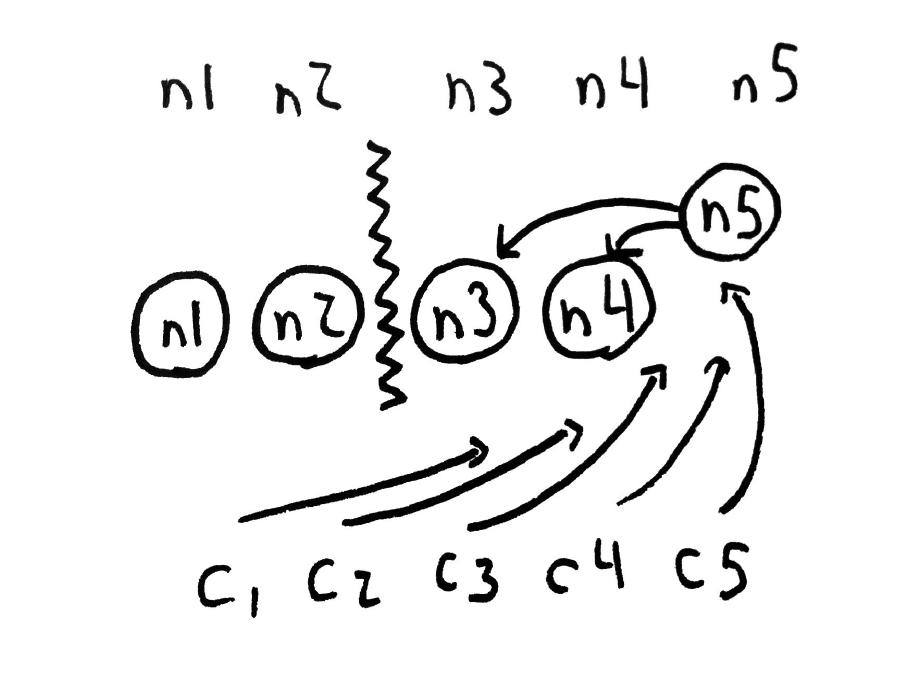 n1 n2 n3 n4 n5
n5
n1 n2 n3 n4
C1 C2 C3 C4 C5